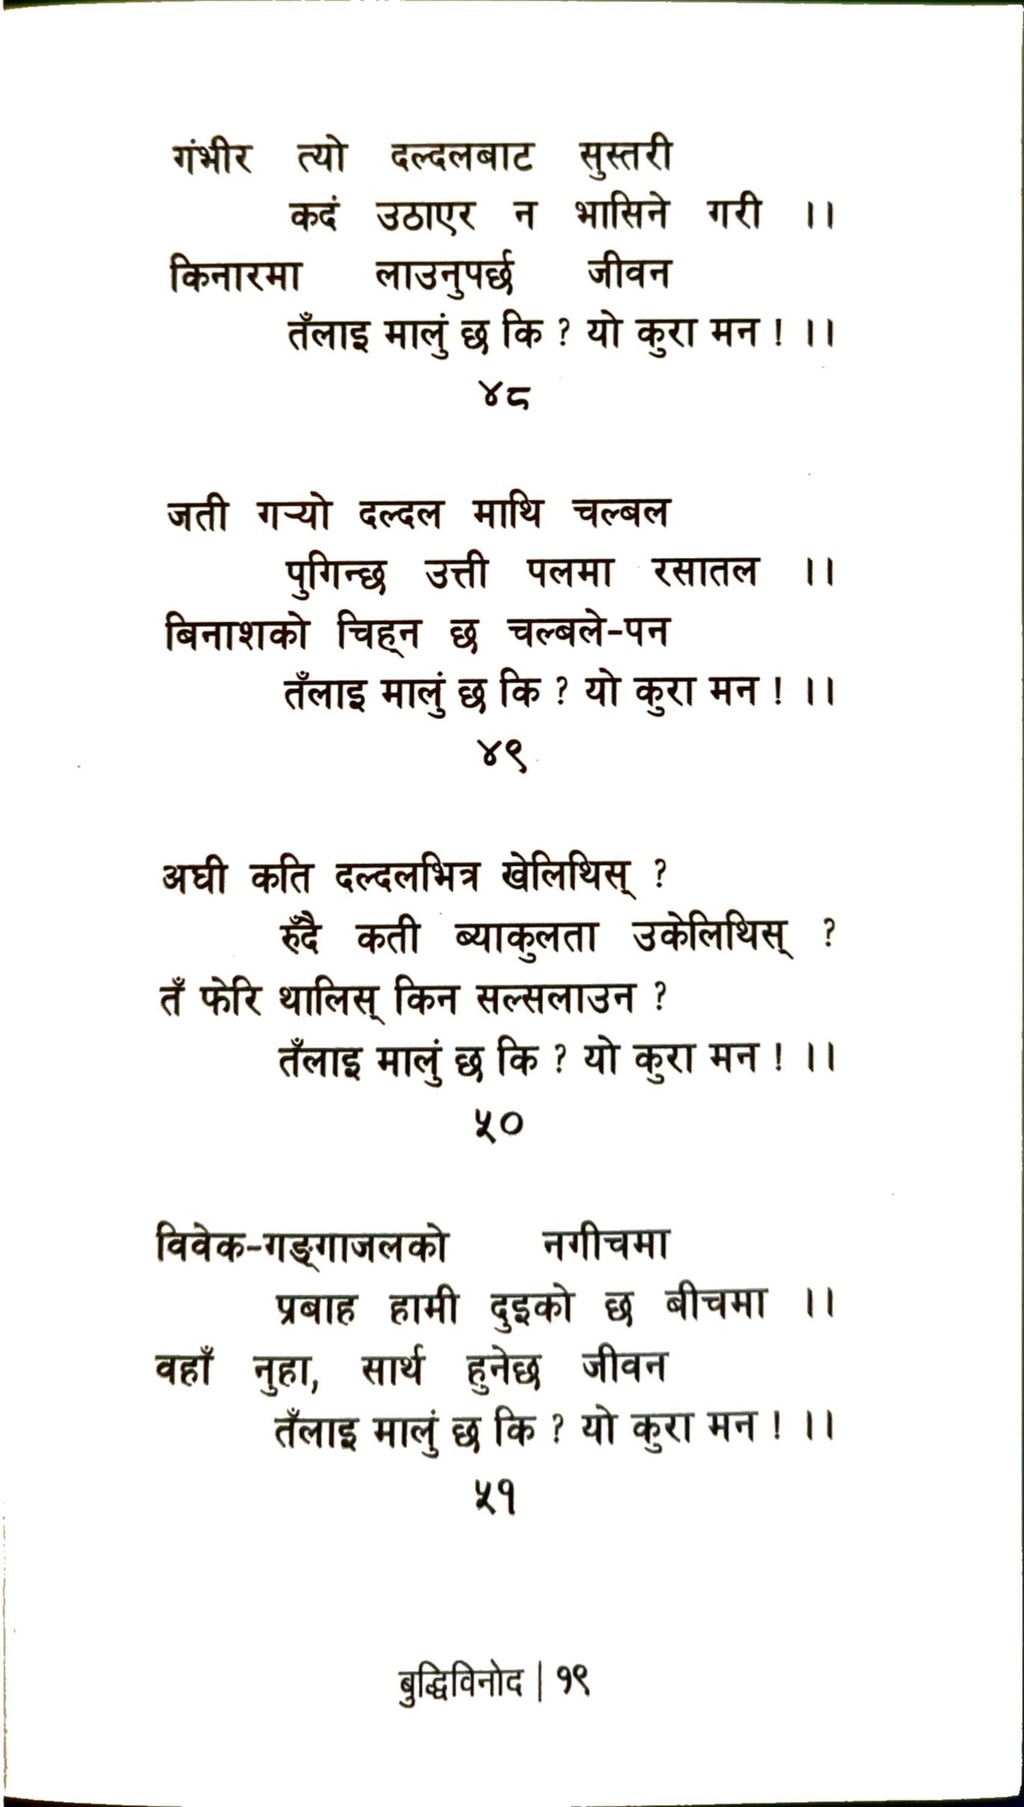 गंभीर त्यो दल्दलबाट सुस्तरी
कदं उठाएर न भासिने गरी ।।
किनारमा लाउनुपर्छ जीवन
तँलाइ मालुं छ कि ? यो कुरा मन ! ।।
४८
जती गर्‍यो दल्दल माथि चल्बल
पुगिन्छ उत्ती पलमा रसातल ।।
बिनाशको चिह्न छ चल्बले-पन
तँलाइ मालुं छ कि ? यो कुरा मन ! ।।
४९
अघी कति दल्दलभित्र खेलिथिस् ?
रुँदै कती ब्याकुलता उकेलिथिस् ?
तँ फेरि थालिस् किन सल्सलाउन ?
तँलाइ मालुं छ कि ? यो कुरा मन ! ।।
५०
विवेक-गङ्गाजलको नगीचमा
प्रबाह हामी दुइको छ बीचमा ।।
वहाँ नुहा, सार्थ हुनेछ जीवन
तँलाइ मालुं छ कि ? यो कुरा मन ! ।।
५१
बुद्धिविनोद | १९